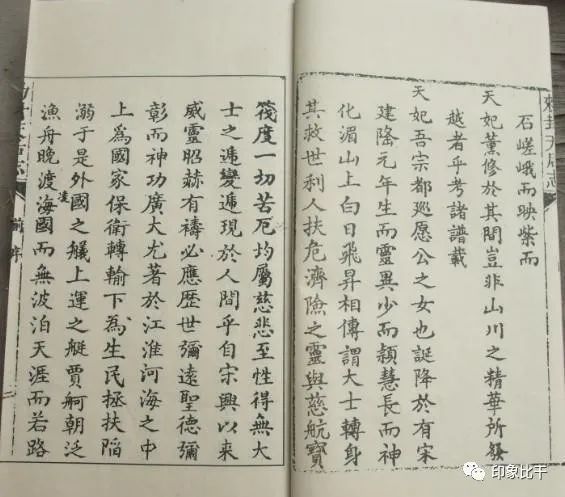 敕封天后志
石嵯峨而映柴而
天妃薰修於其間豈非山川之精華所發
越者乎考諸譜載
天妃吾宗都巡愿公之女也誕降於有宋
建隆元年生而靈異少而穎慧長而神
化湄山上白日飛昇相傳謂大士轉身
其救世利人扶危濟險之靈與慈航寶
筏度一切苦厄均屬慈悲至性得無大
士之遞變遞現於人間乎自宋興以來
威靈昭赫有禱必應歷世彌遠聖德彌
彰而神功廣大尤著於江淮河海之中
上爲國家保衛轉輸下爲生民拯扶陷
溺于是外國之艤上運之艇賈舸朝泛
漁舟晚渡凌海國而無波泊天涯而若路
前序
印象比干